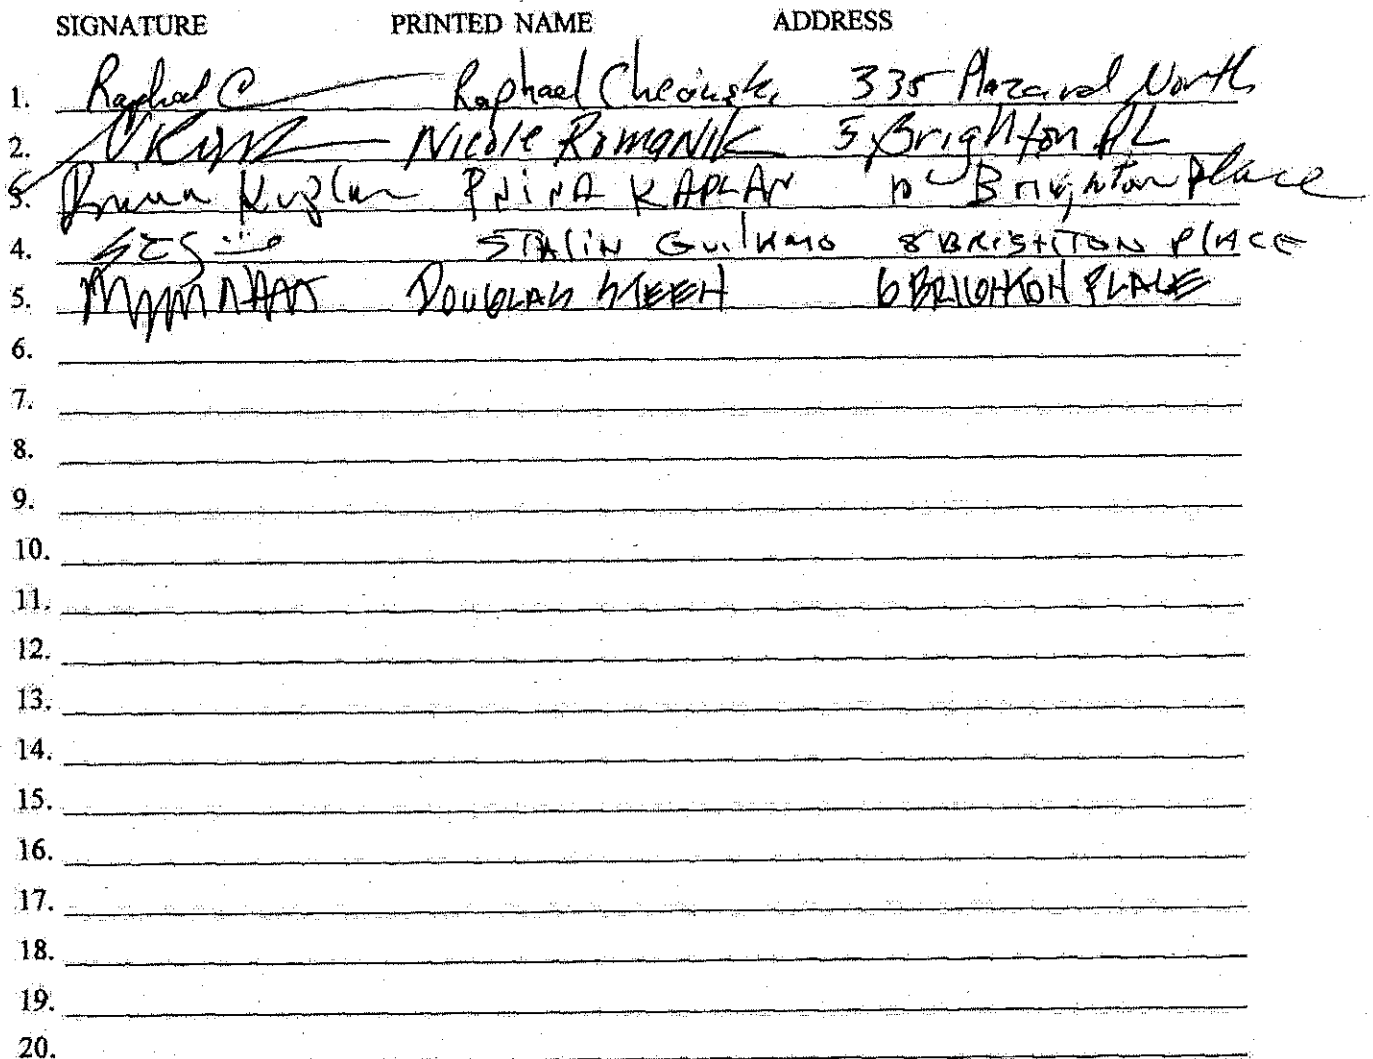 SIGNATURE PRINTED NAME ADDRESS
1. Raphael C Raphael 335 North
2. Nicole Romanik 5 Brighton PL
3. Pnina Kaplan PNINA KAPLAN Brighton Place
4. STALIN 8 BRIGHTON PLACE
5. DOUGLAS STEEN 6 BRIGHTON PLACE
6.
7.
8.
9.
10.
11.
12.
13.
14.
15.
16.
17.
18.
19.
20.